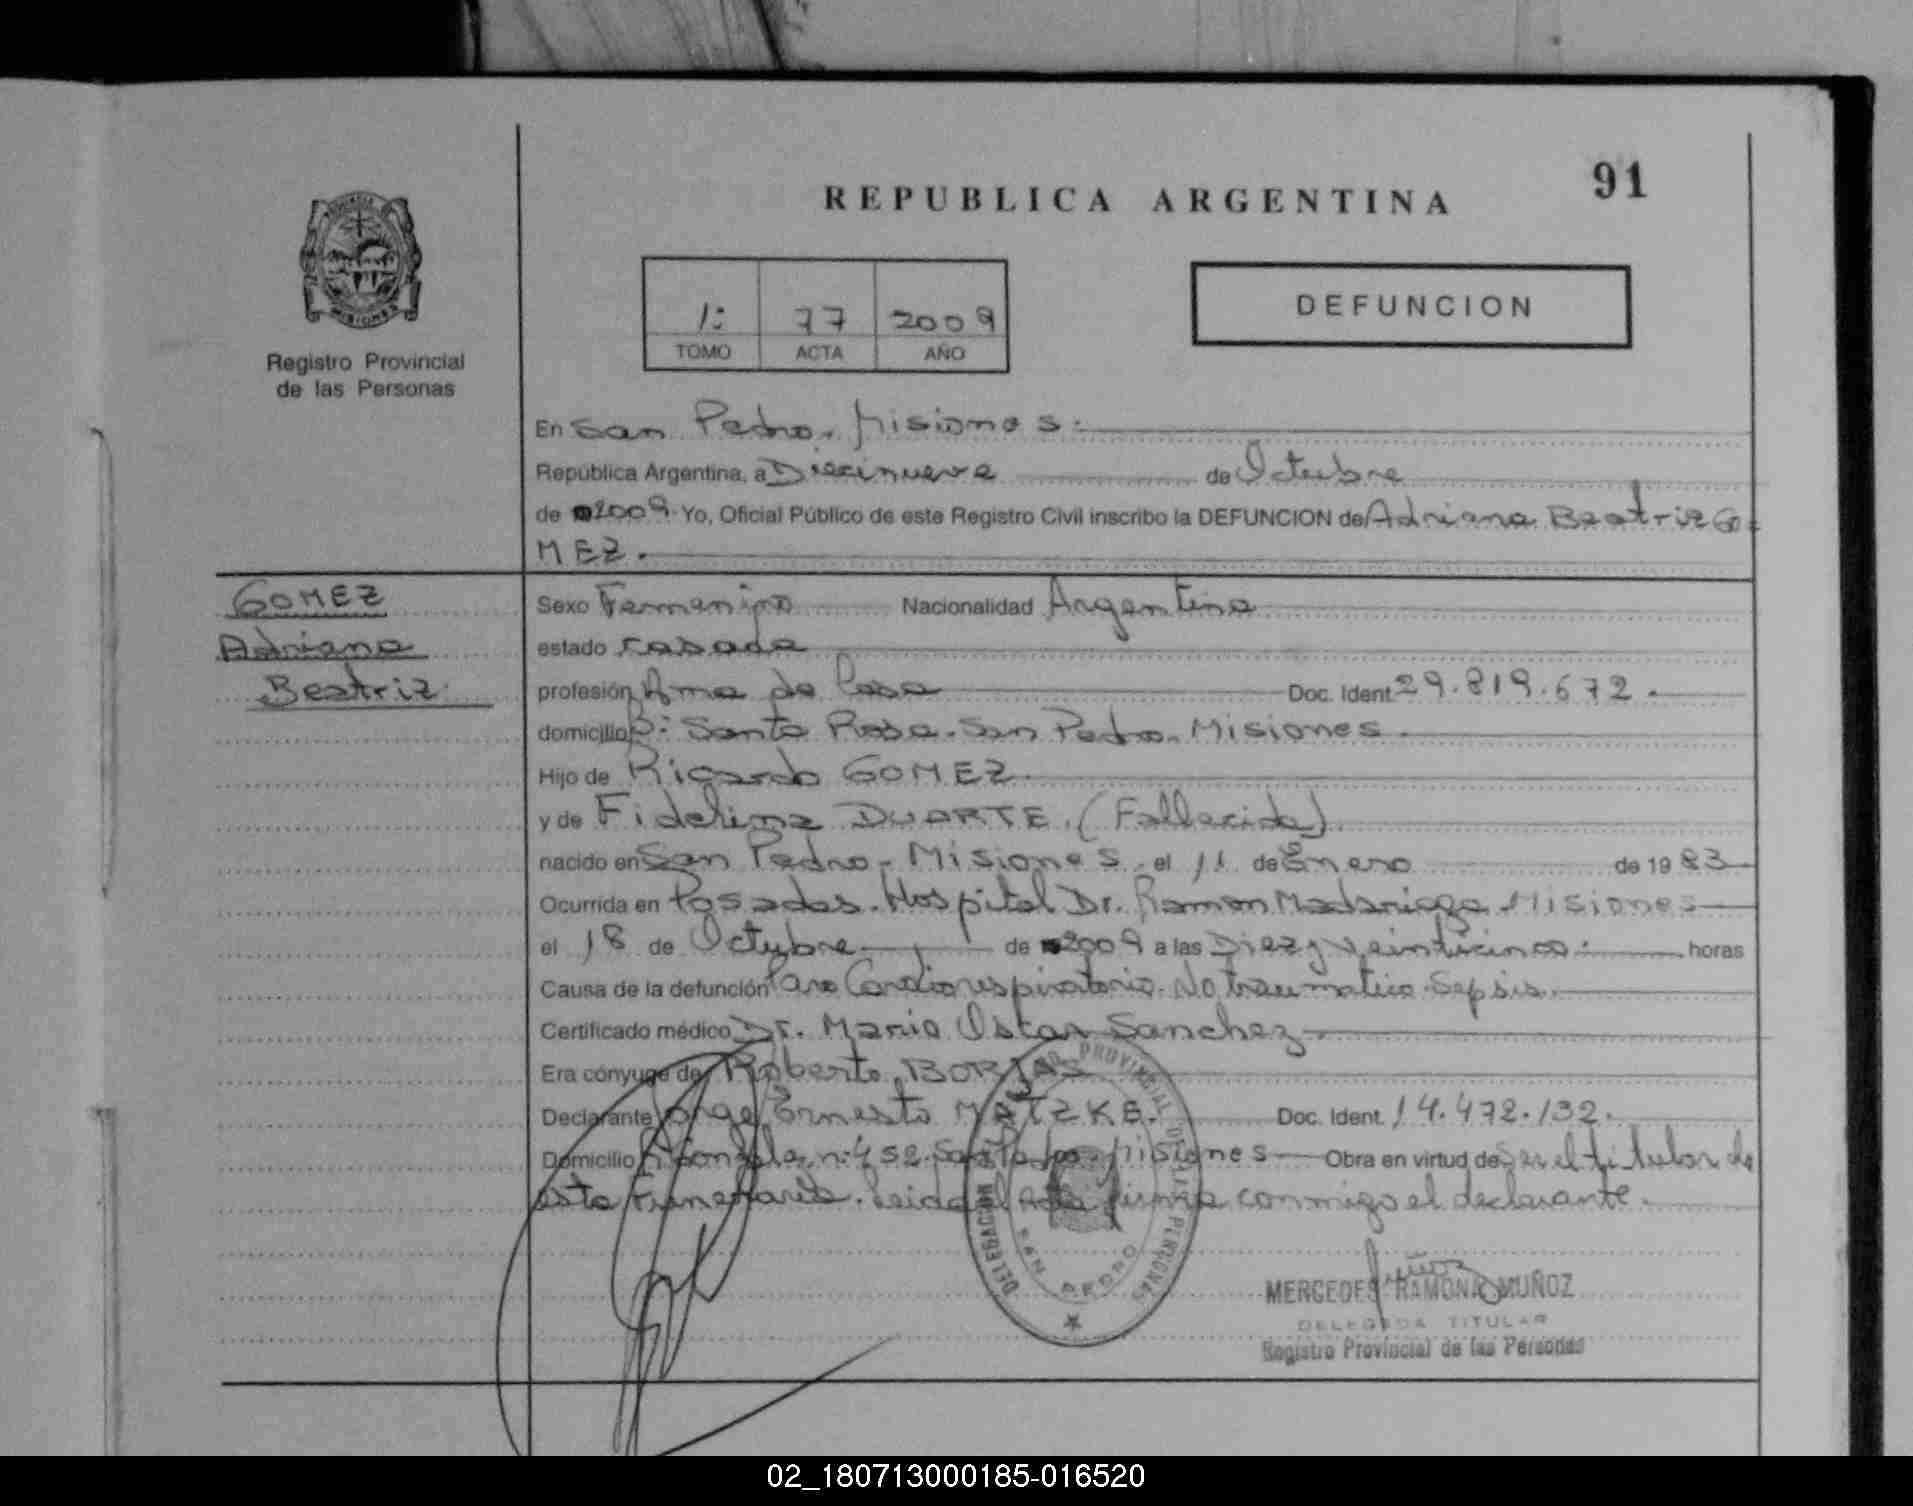 91
REPUBLICA ARGENTINA
PROVINCIA
MISIONES
Registro Provincial
de las Personas
1: 77 2009
TOMO ACTA AÑO
DEFUNCION
En San Pedro. Misiones.
República Argentina, a Diecinueve de Octubre
de 2009. Yo, Oficial Público de este Registro Civil inscribo la DEFUNCION de Adriana Beatriz GO=
MEZ.
GOMEZ
Adriana
Beatriz
Sexo Femenino Nacionalidad Argentina
estado casada
profesión Ama de Casa Doc. Ident. 29.819.672.
domicilio B: Santa Rosa. San Pedro. Misiones.
Hijo de Ricardo GOMEZ.
y de Fidelina DUARTE. (Fallecida).
nacido en San Pedro - Misiones. el 11 de Enero de 19 83
Ocurrida en Posadas. Hospital Dr. Ramon Madariaga. Misiones
el 18 de Octubre de 2009 a las Diez y veinticinco. horas
Causa de la defunción Paro Cardiorespiratorio. No traumatico. Sepsis.
Certificado médico Dr. Mario Oscar Sanchez
Era cónyuge de Roberto BORJAS
Declarante Jorge Ernesto MATZKE. Doc. Ident. 14.472.132.
Domicilio n: 452. San Pedro Misiones Obra en virtud de Ser el titular de
esta Funeraria. Leida el Acta firma conmigo el declarante.
DELEGACION REGISTRO PROVINCIAL DE LAS PERSONAS
SAN PEDRO
MERCEDES RAMONA MUÑOZ
DELEGADA TITULAR
Registro Provincial de las Personas
02_180713000185-016520